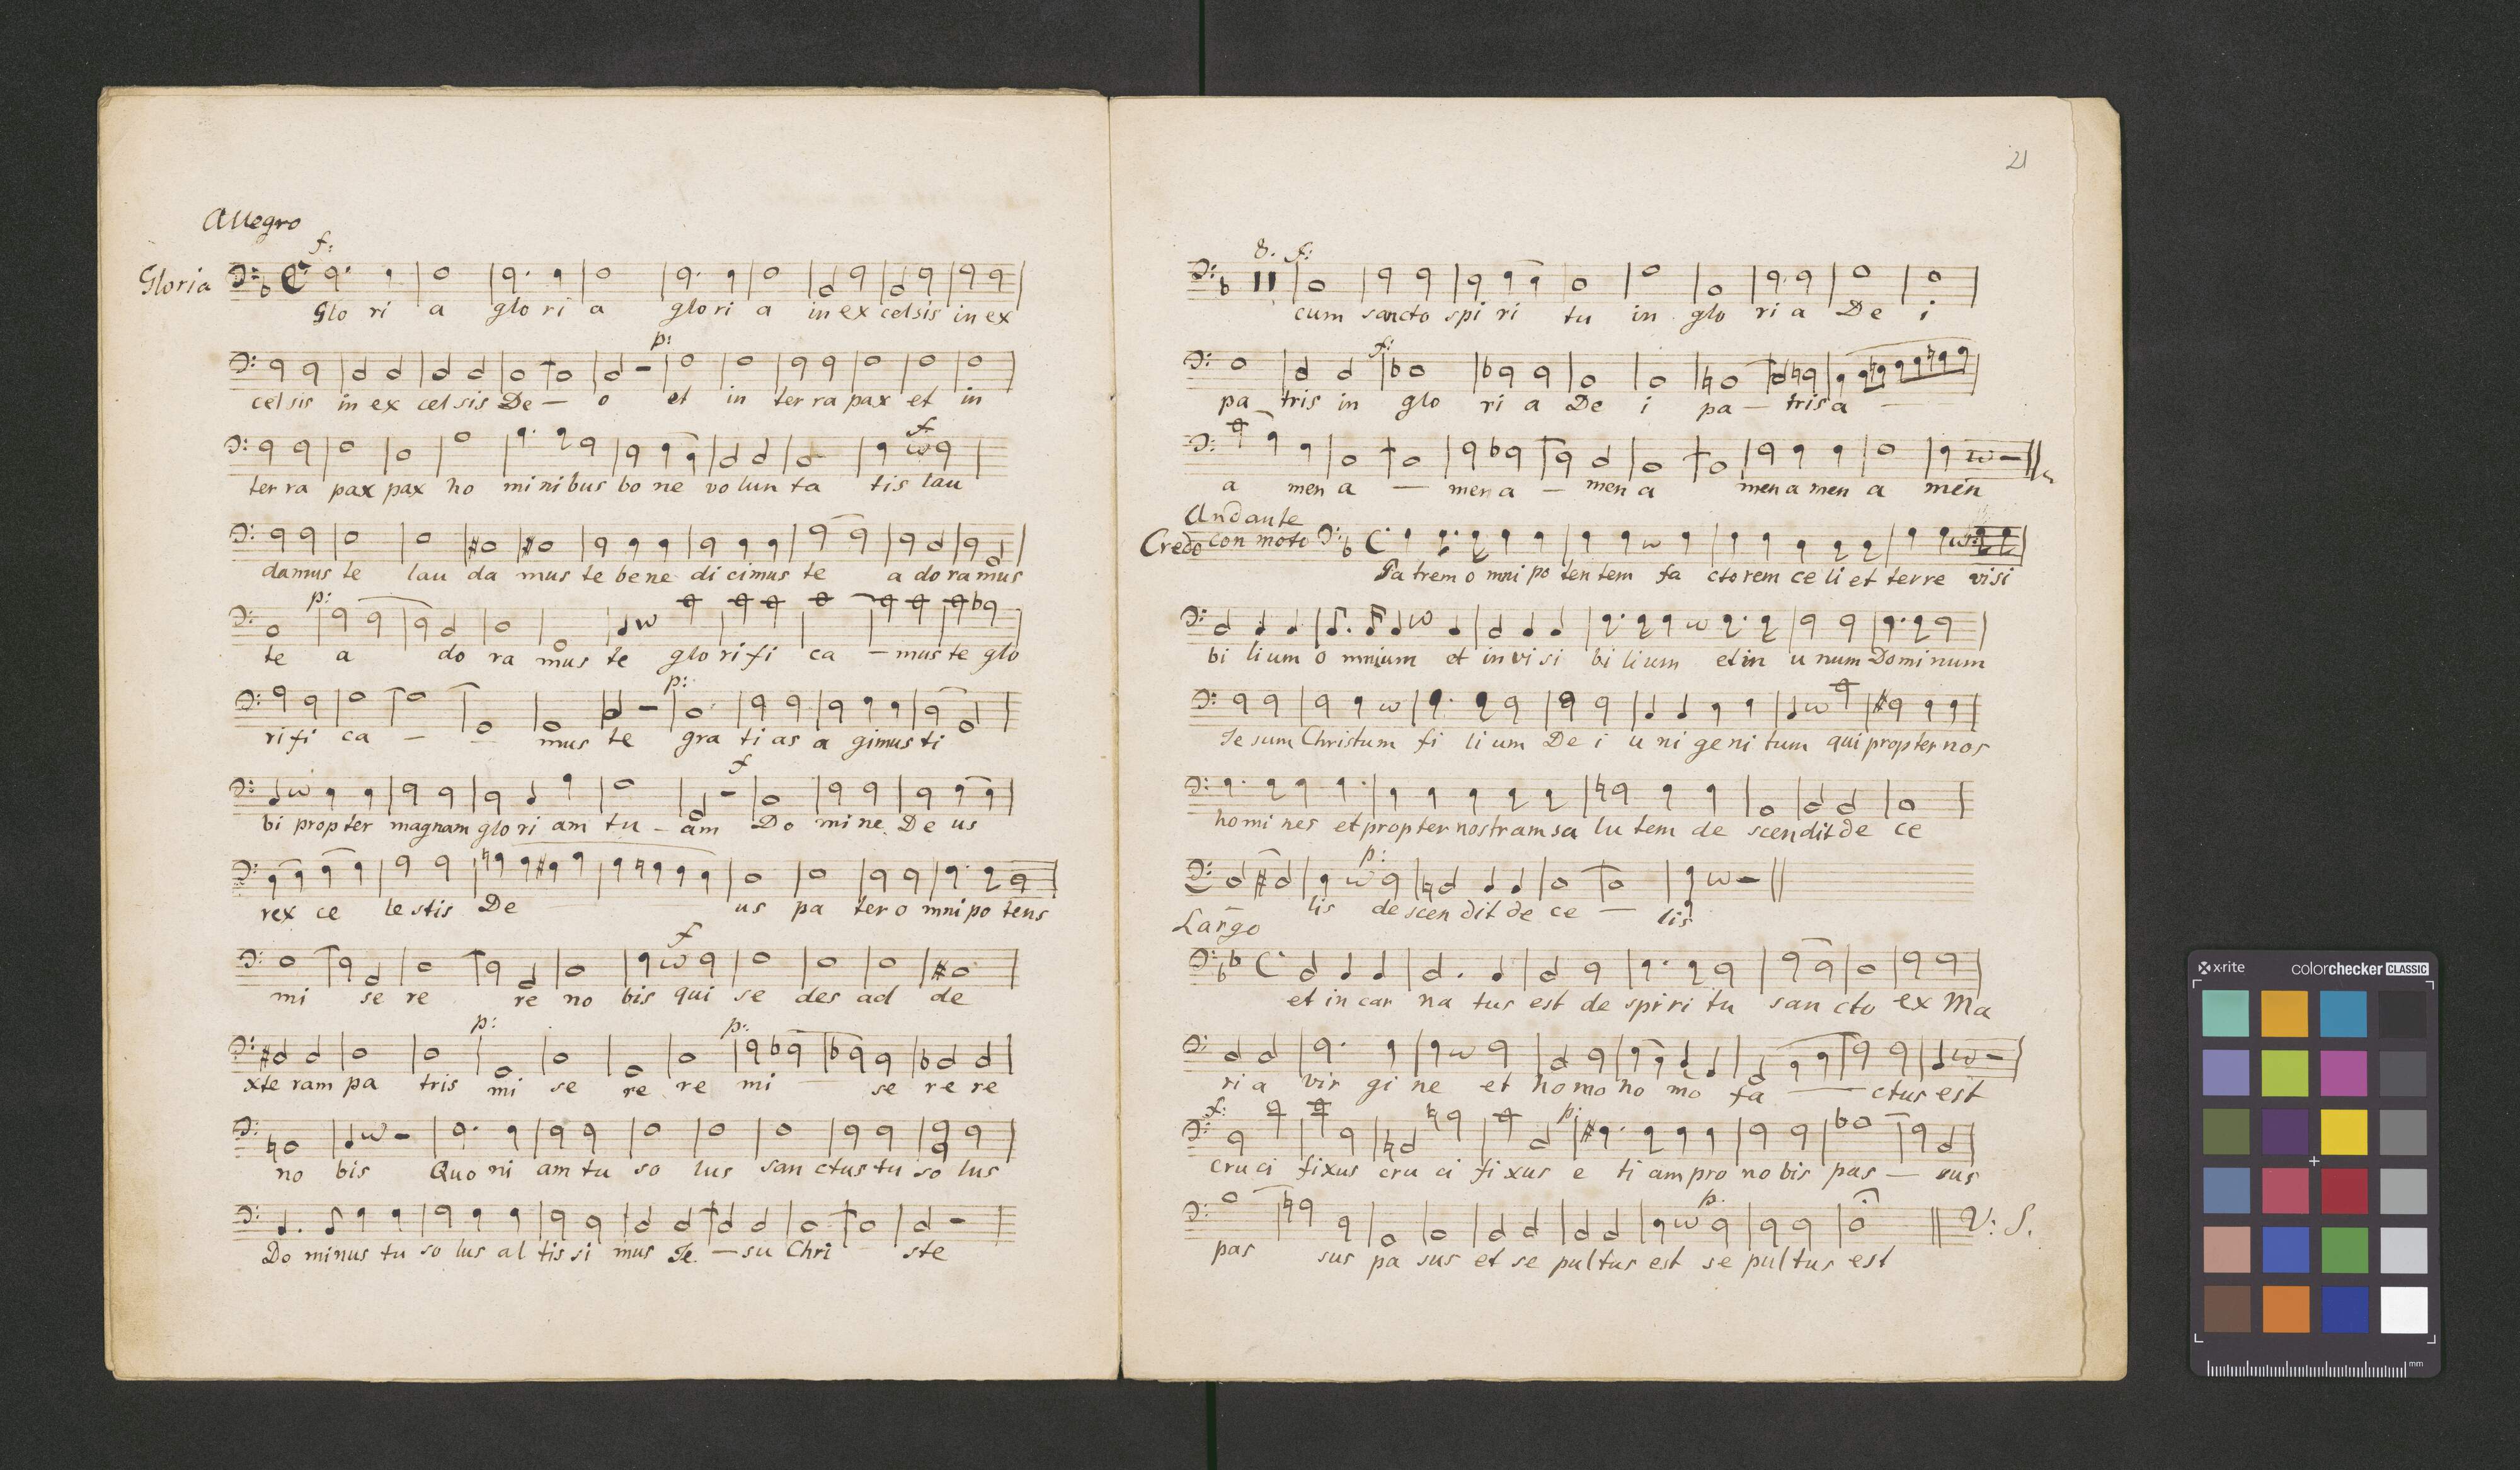 Allegro
f:
Gloria
Glo ri a glo ri a glo ri a in ex celsis in ex
p:
cel sis in ex cel sis De — o et in ter ra pax et in
f.
ter ra pax pax ho mi ni bus bo ne vo lun ta tis lau
damus te lau da mus te be ne di cimus te a do ra mus
p:
te a do ra mus te glo ri fi ca — mus te glo
p:
ri fi ca — — mus te gra ti as a gimus ti
f
bi prop ter magnam glo ri am tu - am Do mi ne De us
rex ce le stis De us pa ter o mni po tens
f
mi se re re no bis qui se des ad de
p: p:
xte ram pa tris mi se re re mi — se re re
no bis Quo ni am tu so lus san ctus tu so lus
Do minus tu so lus al tis si mus Je — su Chri ste
21
8. f:
cum sancto spi ri tu in glo ri a De i
f:
pa tris in glo ri a De i pa — tris a —
a men a — men a — men a men a men a men
Andante
Credo con moto
Pa trem o mni po ten tem fa cto rem ce li et terre visi
bi li um o mnium et in vi si bi li um et in u num Do mi num
Je sum Christum fi li um De i u ni ge ni tum qui propter nos
ho mi nes et propter nostram sa lu tem de scen dit de ce
p:
lis de scen dit de ce — lis
Largo
et in car na tus est de spi ri tu san cto ex Ma
ri a vir gi ne et ho mo ho mo fa — ctus est
f: p:
cru ci fixus cru ci fi xus e ti am pro no bis pas — sus
p.
pas sus pa sus et se pul tus est se pul tus est
V: S.
x-rite colorchecker CLASSIC
mm